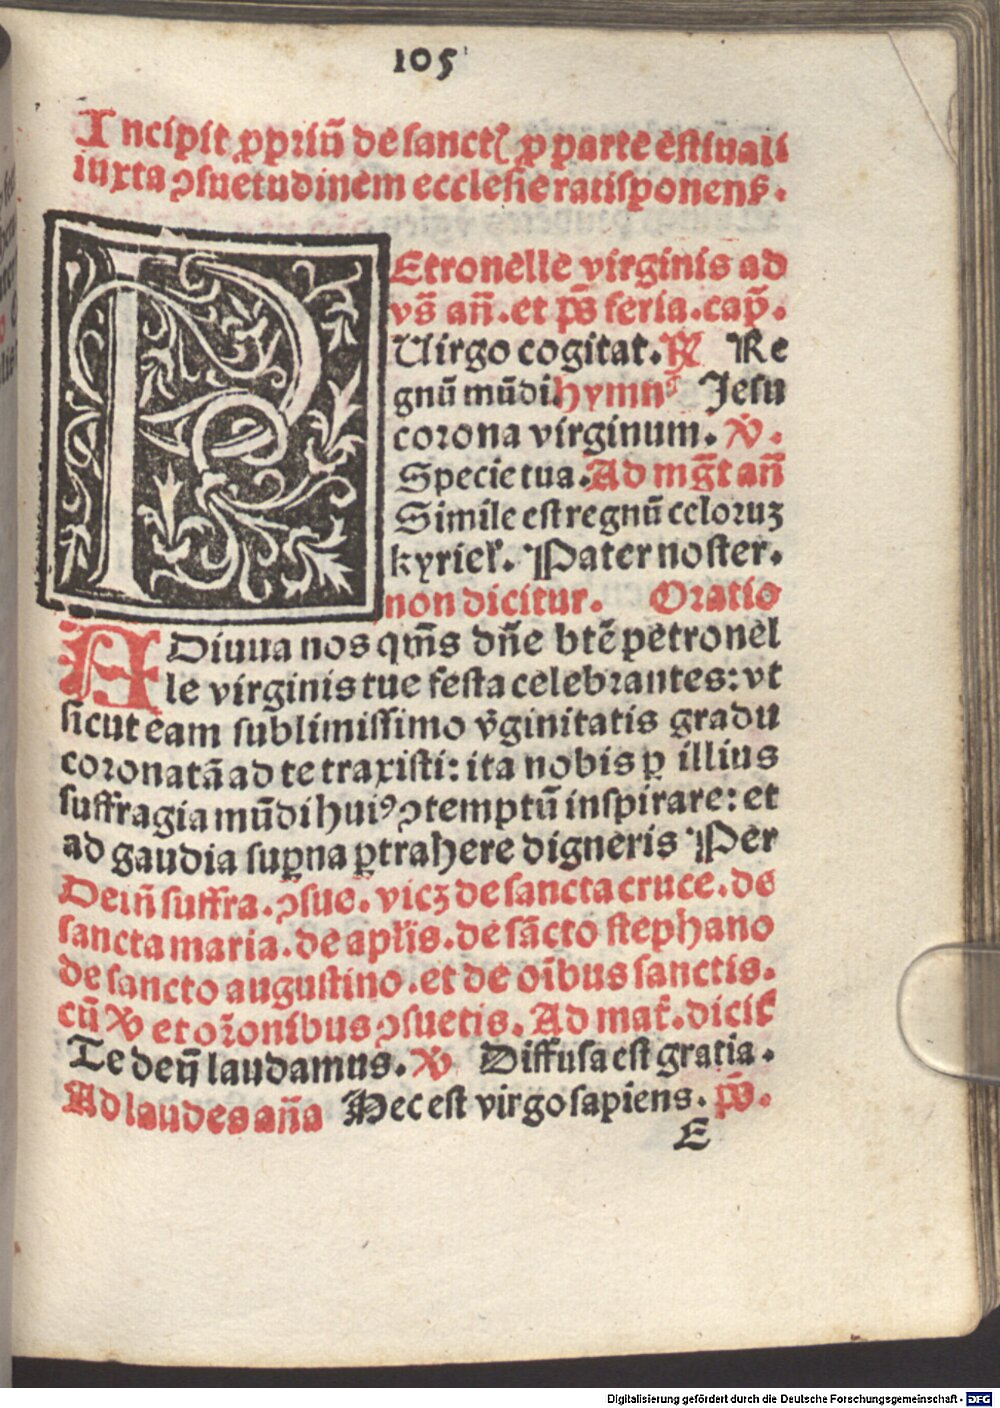 105
Incipit ꝓpriũ de sanctꝭ ꝓ parte estiuali
iuxta ꝯsuetudinem ecclesie ratisponenẞ.
PEtronelle virginis ad
vs̃ añ. et ps̃ feria. cap̃.
Uirgo cogitat. R̷ Re
gnũ mũdi. Hymnꝰ Jesu
corona virginum. V̷.
Specie tua. Ad mg̃t añ
Simile est regnũ celoruꝫ
kyrieľ. Pater noster.
non dicitur. Oratio
ADiuua nos qm̃s dñe btẽ petronel
le virginis tue festa celebrantes: vt
sicut eam sublimissimo v̾ginitatis gradu
coronatã ad te traxisti: ita nobis ꝑ illius
suffragia mũdi huiꝰ ꝯtemptũ inspirare: et
ad gaudia suꝑna ꝑtrahere digneris Per
Deiñ suffra. ꝯsue. vicꝫ de sancta cruce. de
sancta maria. de apľis. de sãcto stephano
de sancto augustino. et de oĩbus sanctis.
cũ V̷ et or̃onibus ꝯsuetis. Ad mať. diciť
Te deũ laudamus. V̷ Diffusa est gratia.
Ad laudes aña Hec est virgo sapiens. ps̃.
E
Digitalisierung gefördert durch die Deutsche Forschungsgemeinschaft - DFG